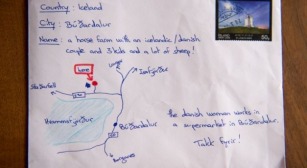 Country : Iceland
City : Búðardalur
Name : a horse farm with an icelandic/danish
couple and 3 kids and a lot of sheep!
here
Ísafjörður
Búðardalur
the danish woman works in
a supermarket in Búðardalur.
Takk fyrir!